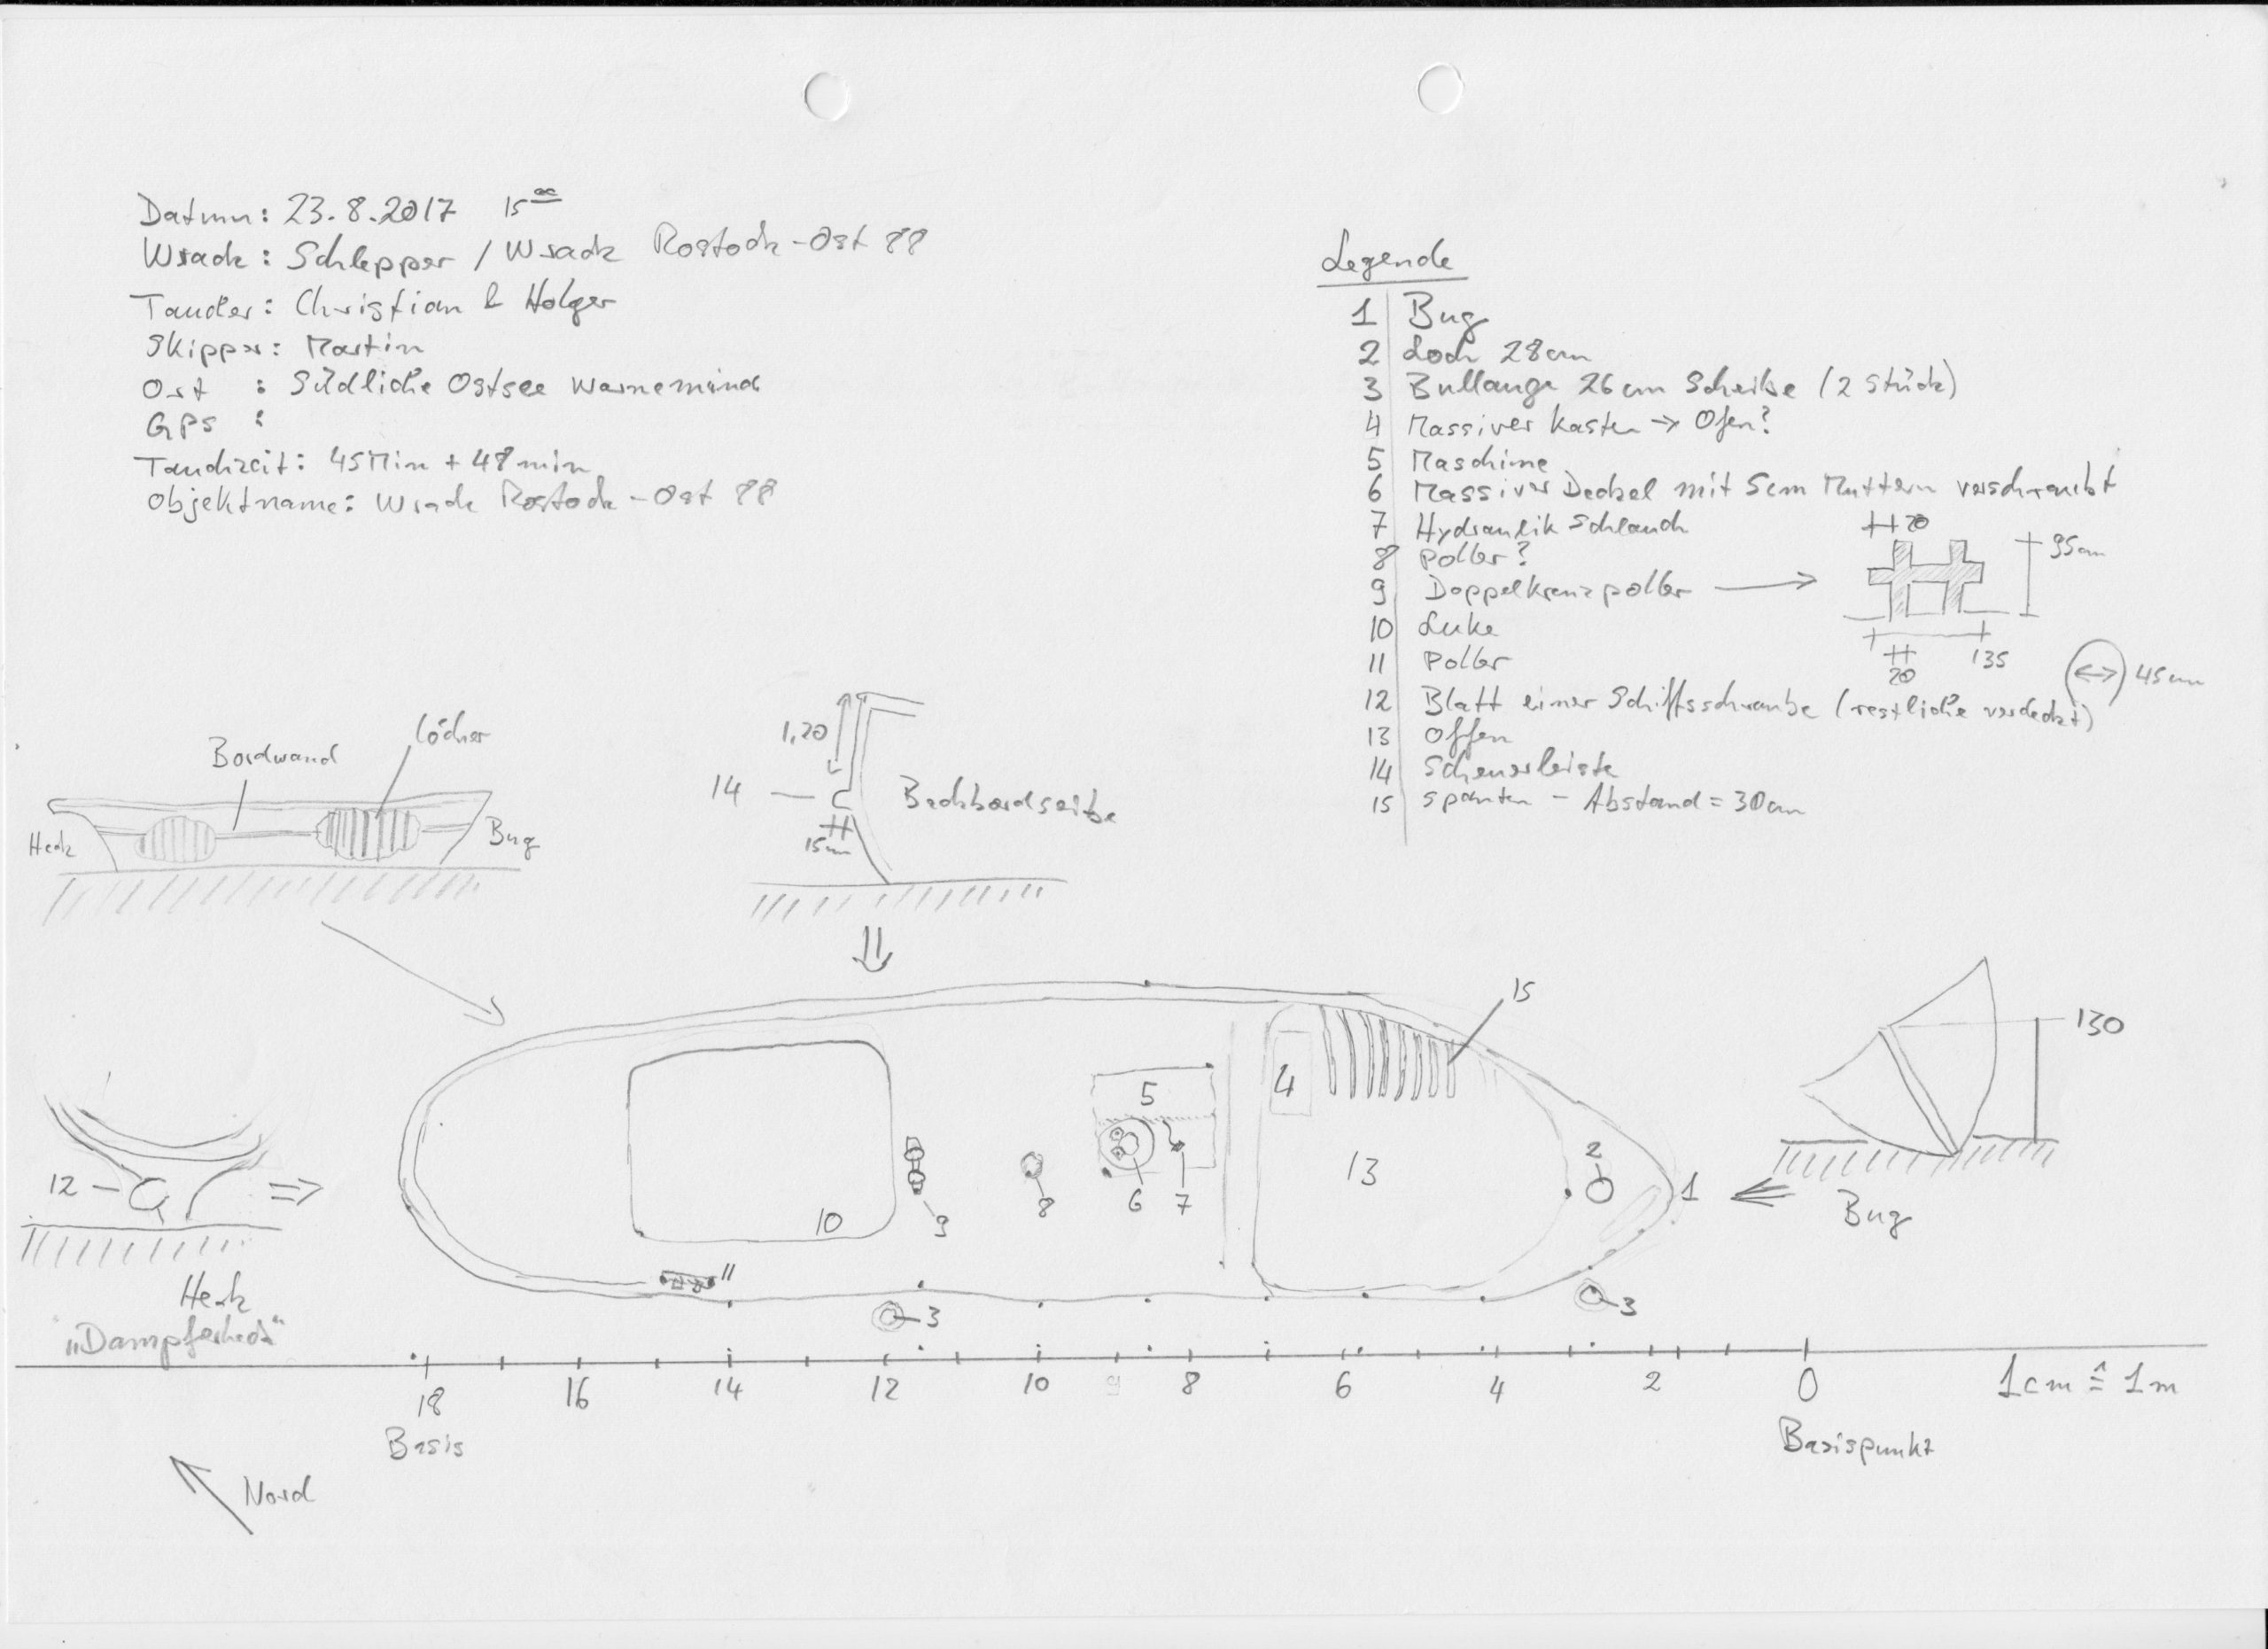 Datum: 23.8.2017 15ºº
Wrack: Schlepper / Wrack Rostock-Ost 88
Taucher: Christian & Holger
Skipper: Martin
Ort : Südliche Ostsee Warnemünde
GPS :
Tauchzeit: 45Min + 48min
Objektname: Wrack Rostock-Ost 88
Legende
1 Bug
2 Loch 28cm
3 Bullauge 26cm Scheibe (2 Stück)
4 Massiver Kasten → Ofen?
5 Maschine
6 Massiver Deckel mit 5cm Muttern verschraubt
7 Hydraulik Schlauch
8 Poller?
9 Doppelkreuzpoller →
10 Luke
11 Poller
12 Blatt einer Schiffsschraube (restliche verdeckt)
13 Offen
14 Scheuerleiste
15 Spanten - Abstand = 30cm
20
95cm
20
135
45cm
Löcher
Bordwand
Heck
Bug
1,20
14
Backbordseite
15cm
15
130
Bug
4
5
13
2
1
12
10
9
8
6
7
11
3
3
Heck
"Dampferheck"
18
16
14
12
10
9
8
6
4
2
0
1cm ≙ 1m
Basis
Basispunkt
Nord